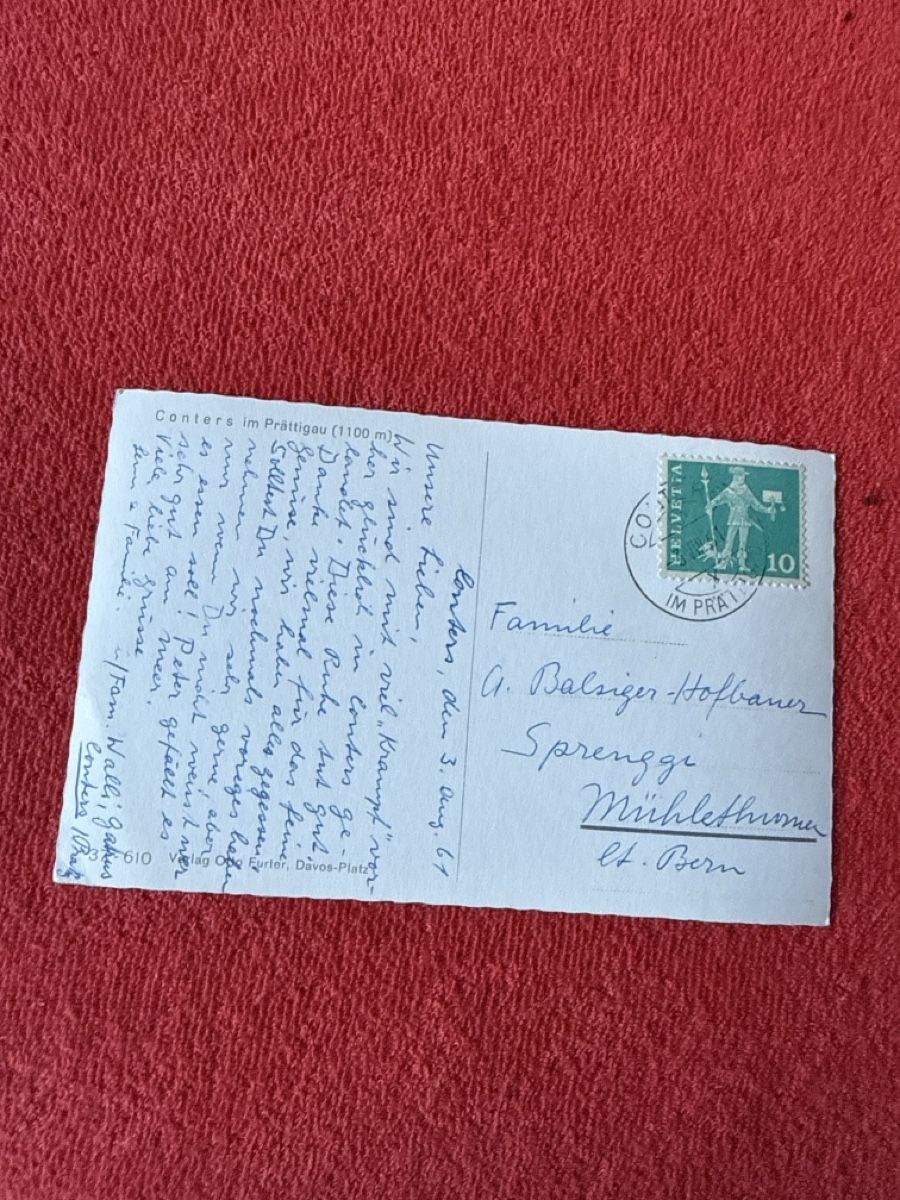 Conters im Prättigau (1100 m)
Conters, den 3. Aug. 61
Unsere Lieben,
Wir sind mit viel „Krampf" vor-
her glücklich in Conters ge
landet. Diese Ruhe tut gut.
Danke vielmal für das feine
Gemüse, wir haben alles gegessen.
Solltest Du nochmals voriges haben
nehmen wir sehr gerne aber
nur wenn Du nicht weisst wer
es essen soll! Peter gefällt es
sehr gut am Meer.
Viele liebe Grüsse
Fam. Walli,
Conters
610 Verlag Otto Furter, Davos-Platz
HELVETIA
10
IM PRÄT
Familie
A. Balsiger-Hofbauer
Sprenggi
Mühlethurnen
Ct. Bern